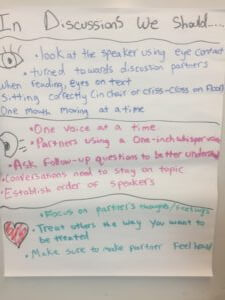 In Discussions We Should....
• look at the speaker using eye contact
• turned towards discussion partners
when reading, eyes on text
Sitting correctly (in chair or criss-cross on floor)
One mouth moving at a time
• One voice at a time
• Partners using a One-inch whisper voice
• Ask follow-up questions to better understand
• Conversations need to stay on topic
• Establish order of speakers
• Focus on partner's thoughts/feelings
• Treat others the way you want to
be treated
• Make sure to make partner feel heard